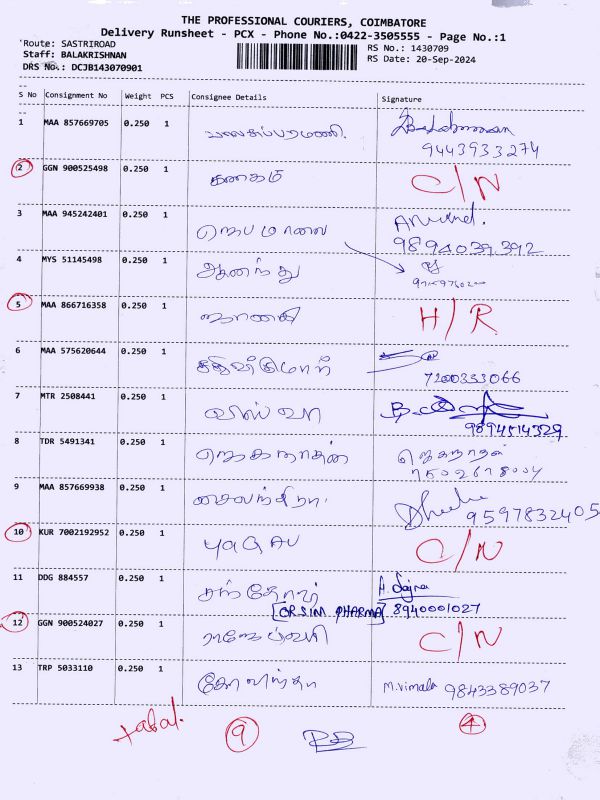 THE PROFESSIONAL COURIERS, COIMBATORE
Delivery Runsheet - PCX - Phone No.:0422-3505555 - Page No.:1
Route: SASTRIROAD RS No.: 1430709
Staff: BALAKRISHNAN RS Date: 20-Sep-2024
DRS No.: DCJB143070901
S No Consignment No Weight PCS Consignee Details Signature
1 MAA 857669705 0.250 1
9443933274
2 GGN 900525498 0.250 1 கனகம் C/N
3 MAA 945242401 0.250 1 ஜெபமாலை Anand.
9894039392
4 MYS 51145498 0.250 1 ஆனந்து
5 MAA 866716358 0.250 1 ஜானகி H/R
6 MAA 575620644 0.250 1
7200353066
7 MTR 2508441 0.250 1 விஸ்வா
9894514329
8 TDR 5491341 0.250 1 ஜெகநாதன் ஜெகநாதன்
7502678004
9 MAA 857669938 0.250 1
9597832405
10 KUR 7002192952 0.250 1 C/N
11 DDG 884557 0.250 1 சந்தோஷ்
ORSIM PHARMA 8940001027
12 GGN 900524027 0.250 1 ராஜேஷ்வரி C/N
13 TRP 5033110 0.250 1 கோவிந்தா M.Vimala 9843389037
Total. 9 4